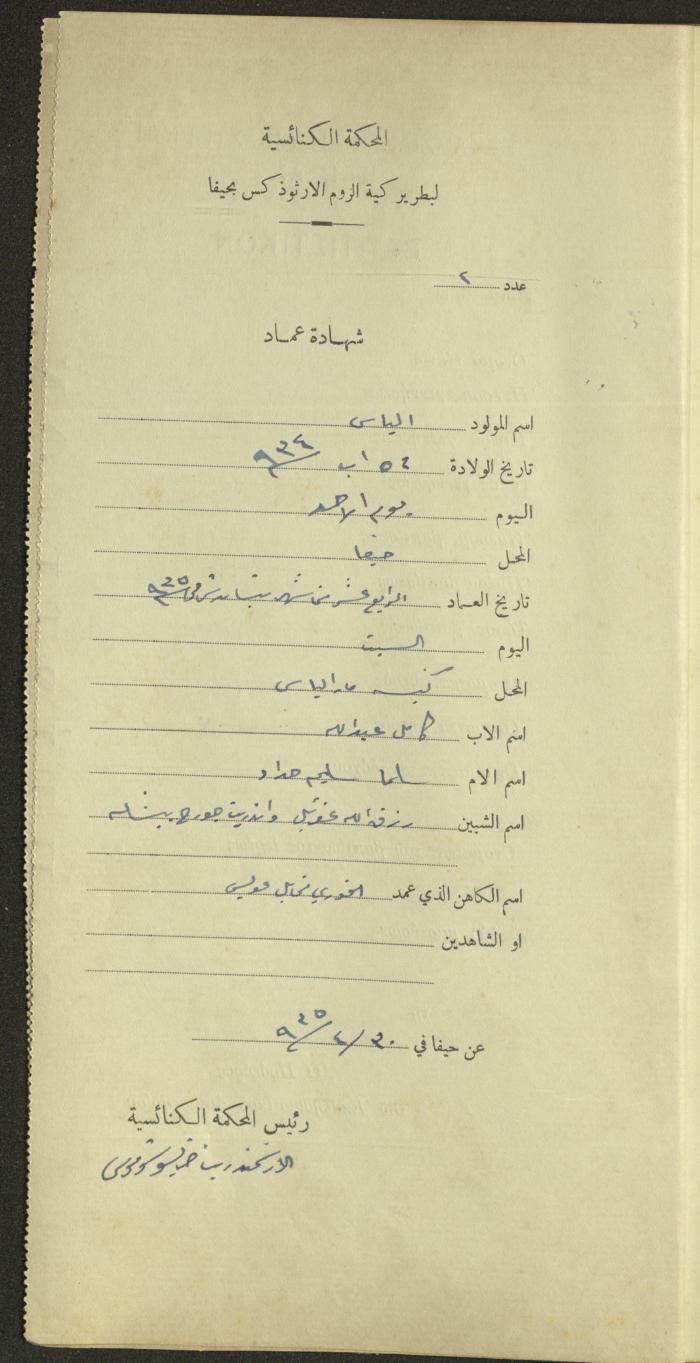 المحكمة الكنائسية
لبطريركية الروم الارثوذكس بحيفا
عدد ٢
شهادة عماد
اسم المولود الياس
تاريخ الولادة ٥٤ اب ٩٣٤
اليوم يوم الاحد
المحل حيفا
تاريخ العماد الرابع عشر من شهر ٩٣٥
اليوم السبت
المحل كنيسة مار الياس
اسم الاب كامل عبدالله
اسم الام سلما سليم حداد
اسم الشبين رزق الله واندريت جورج
اسم الكاهن الذي عمد الخوري
او الشاهدين
عن حيفا في ٣٠/٤/٩٣٥
رئيس المحكمة الكنائسية